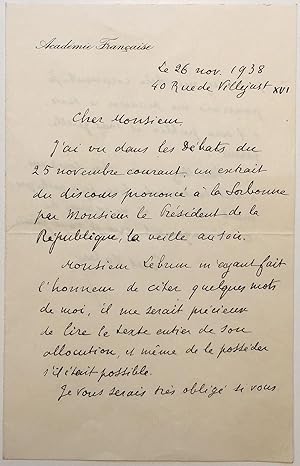 Académie Française
Le 26 nov. 1938
40 Rue de Villejust XVI
Cher Monsieur
J'ai vu dans les Débats du
25 novembre courant, un extrait
du discours prononcé à la Sorbonne
par Monsieur le Président de la
République, la veille au soir.
Monsieur Lebrun m'ayant fait
l'honneur de citer quelques mots
de moi, il me serait précieux
de lire le texte entier de son
allocution, et même de la posséder
s'il était possible.
Je vous serais très obligé si vous